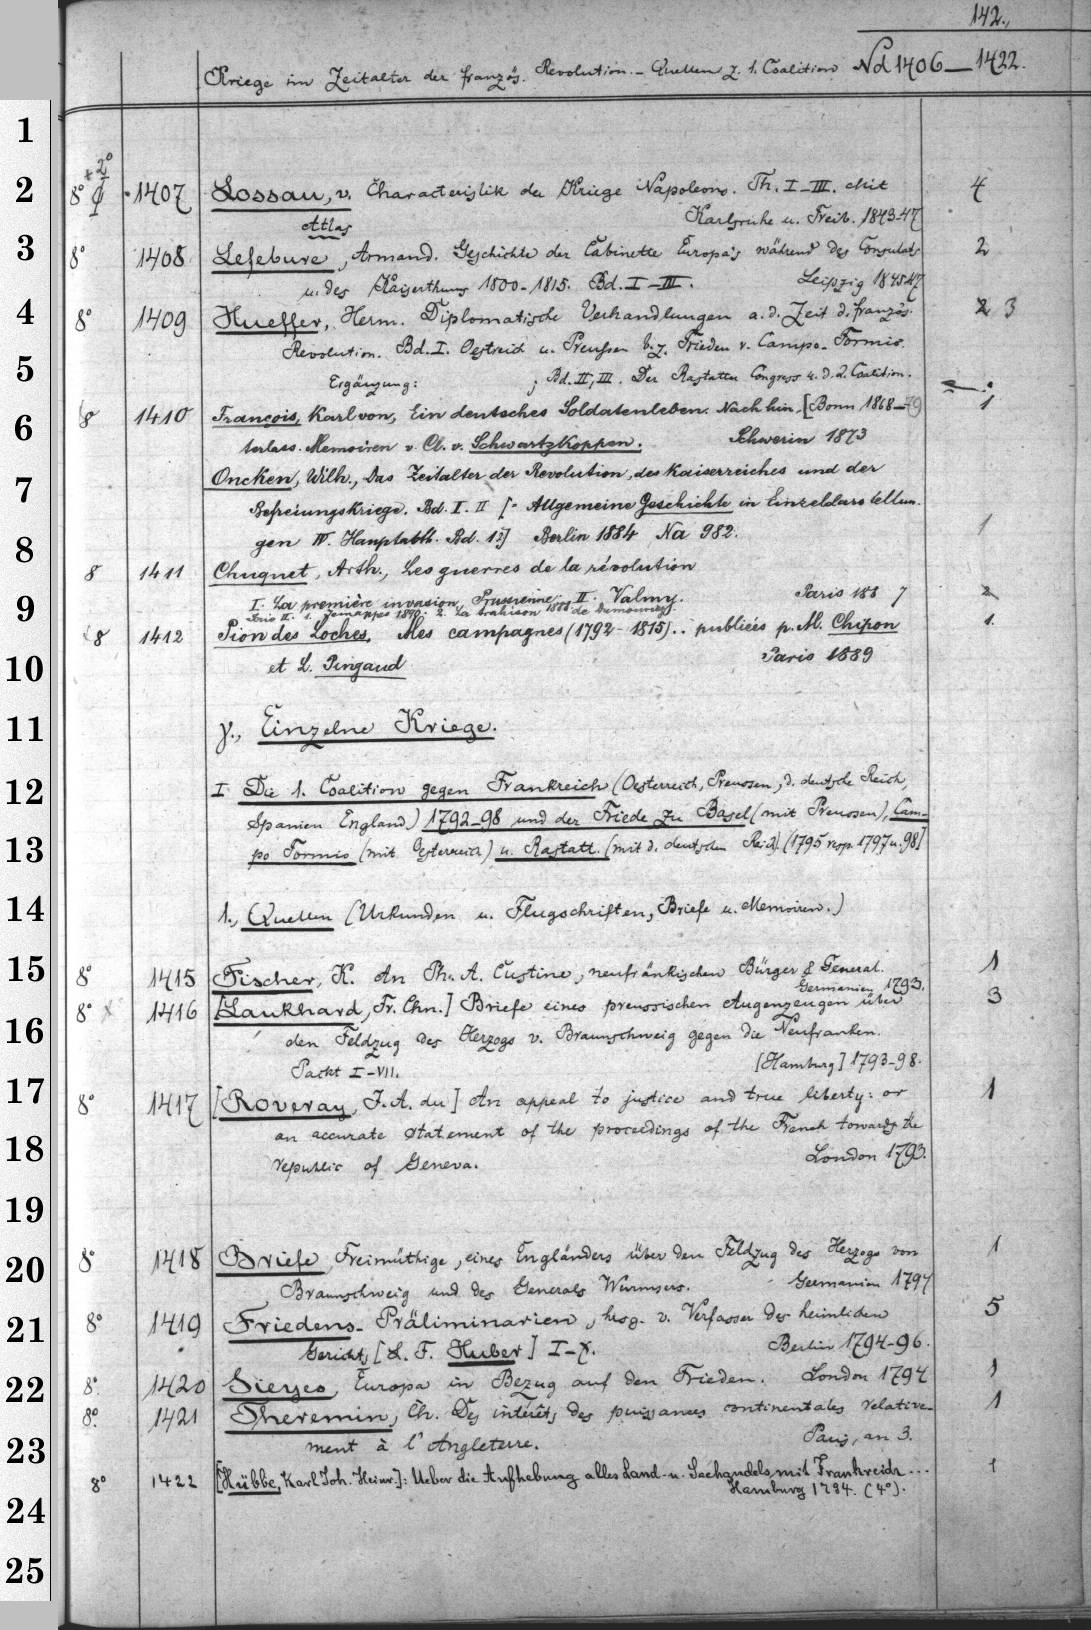 142.
Kriege im Zeitalter der französ. Revolution. - Quellen z. 1. Coalition Nd 1406 — 1422.
1
+2°
2 8° 1407 Lossau, v. Characteristik der Kriege Napoleons. Th. I-III. Mit 4
Atlas Karlsruhe u. Freib. 1843-47
3 8° 1408 Lefebure, Armand. Geschichte der Cabinette Europa's während des Consulats 2
u. des Kaiserthums 1800-1815. Bd. I-III. Leipzig 1845-47
4 8° 1409 Hueffer, Herm. Diplomatische Verhandlungen a. d. Zeit d. französ. 2 3
Revolution. Bd. I. Oestreich u. Preussen b. z. Frieden v. Campo-Formio.
5 Ergänzung: ; Bd. II, III. Der Rastatter Congress u. d. 2. Coalition.
[Bonn 1868-79
6 8 1410 François, Karl von, Ein deutsches Soldatenleben. Nach hin- 1
terlass. Memoiren v. Cl. v. Schwartzkoppen. Schwerin 1873
7 Oncken, Wilh., Das Zeitalter der Revolution, des Kaiserreiches und der
Befreiungskriege. Bd. I. II [= Allgemeine Geschichte in Einzeldarstellun-
8 gen IV. Hauptabth. Bd. 1] Berlin 1884 Na 982. 1
8 1411 Chuquet, Arth., Les guerres de la révolution
9 I. La première invasion Prussienne. II. Valmy. Paris 188 7 2
1. Jemappes 1890. 2. La trahison de Dumouriez.
8 1412 Pion des Loches, Mes campagnes (1792-1815).. publiées p. M. Chipon 1.
10 et L. Pingaud Paris 1889
11 γ., Einzelne Kriege.
12 I Die 1. Coalition gegen Frankreich (Oesterreich, Preussen, d. deutsche Reich,
Spanien England) 1792-98 und der Friede zu Basel (mit Preussen), Cam-
13 po Formio (mit Oesterreich) u. Rastatt. (mit d. deutschen Reich) (1795 resp. 1797 u. 98]
14 1., Quellen (Urkunden u. Flugschriften, Briefe u. Memoiren.)
15 8° 1415 Fischer, K. An Ph. A. Custine, neufränkischen Bürger & General. 1
Germanien 1793.
8° x 1416 [Laukhard, Fr. Chn.] Briefe eines preussischen Augenzeugen über 3
16 den Feldzug des Herzogs v. Braunschweig gegen die Neufranken.
Packt I-VII. [Hamburg] 1793-98.
17 8° 1417 [Roveray, J. A. du] An appeal to justice and true liberty: or 1
an accurate statement of the proceedings of the French towards the
18 republic of Geneva. London 1793.
19
20 8° 1418 Briefe, Freimüthige, eines Engländers über den Feldzug des Herzogs von 1
Braunschweig und des Generals Wurmsers. Germanien 1794
21 8° 1419 Friedens-Präliminarien, hrsg. v. Verfasser des heimlichen 5
Gerichts [L. F. Huber] I-X. Berlin 1794-96.
22 8° 1420 Sieyes, Europa in Bezug auf den Frieden. London 1794 1
8° 1421 Theremin, Ch. Des intérêts des puissances continentales relative- 1
23 ment à l'Angleterre. Paris, an 3.
8° 1422 [Hübbe, Karl Joh. Heinr.]: Ueber die Aufhebung alles Land- u. Seehandels mit Frankreich ... 1
24 Hamburg 1794. (4°).
25